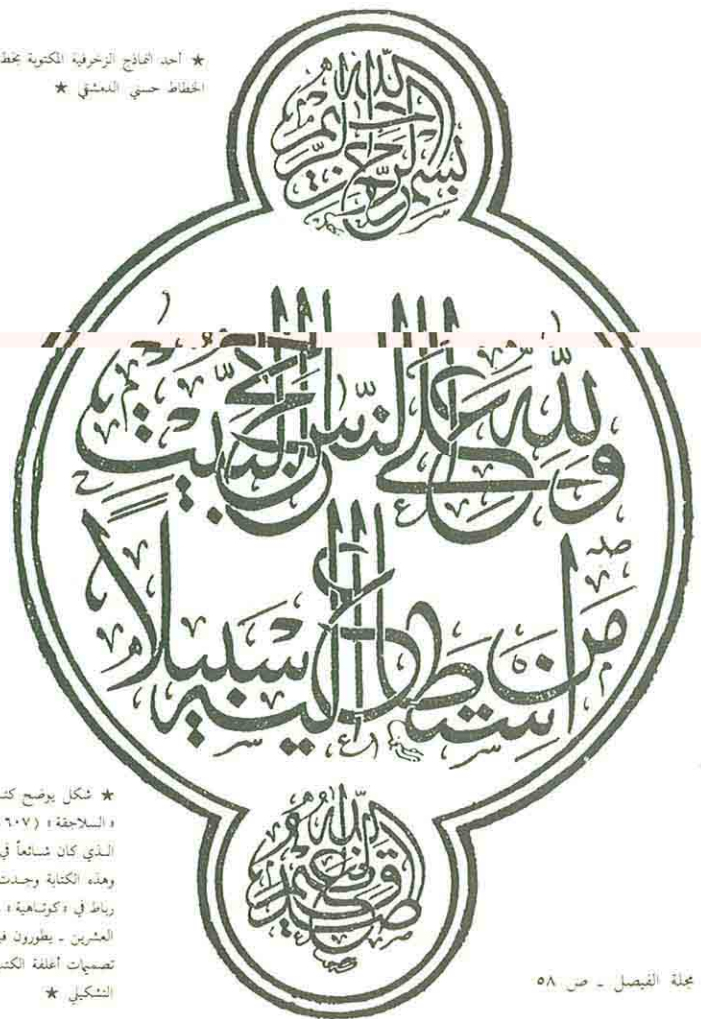 ★ أحد النماذج الزخرفية المكتوبة بخط
الخطاط حسني الدمشقي ★
بسم الله الرحمن الرحيم
ولله على الناس حج البيت
من استطاع إليه سبيلا
صدق الله العظيم
★ شكل يوضح
« السلاجقة » (٦٠٧
الذي كان شائعاً في
وهذه الكتابة وجدت
رباط في « كوتاهية »
العشرين ـ يطورون
تصميمات أغلفة الكتب
التشكيلي ★
مجلة الفيصل ـ ص ٥٨